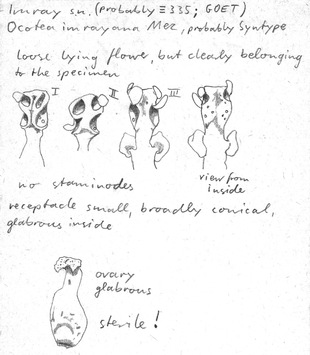 Imray s.n. (probably ≡ 335; GOET)
Ocotea imrayana Mez, probably Syntype
loose lying flower, but clearly belonging
to the specimen
I II III
view from
inside
no staminodes
receptacle small, broadly conical,
glabrous inside
ovary
glabrous
sterile!